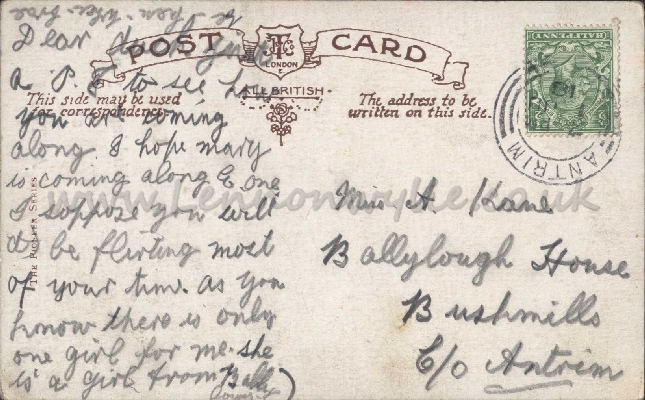 Dear
a P.C to see how
you are coming
along I hope mary
is coming along & one
I suppose you will
be flirting most
of your time. as you
know there is only
one girl for me. she
is a girl from Bally
POST CARD
LONDON
E
ALL BRITISH
This side may be used
for correspondence.
The address to be
written on this side.
THE PIONEER SERIES
HALFPENNY
ANTRIM
Miss A. Kane
Ballylough House
Bushmills
C/o Antrim